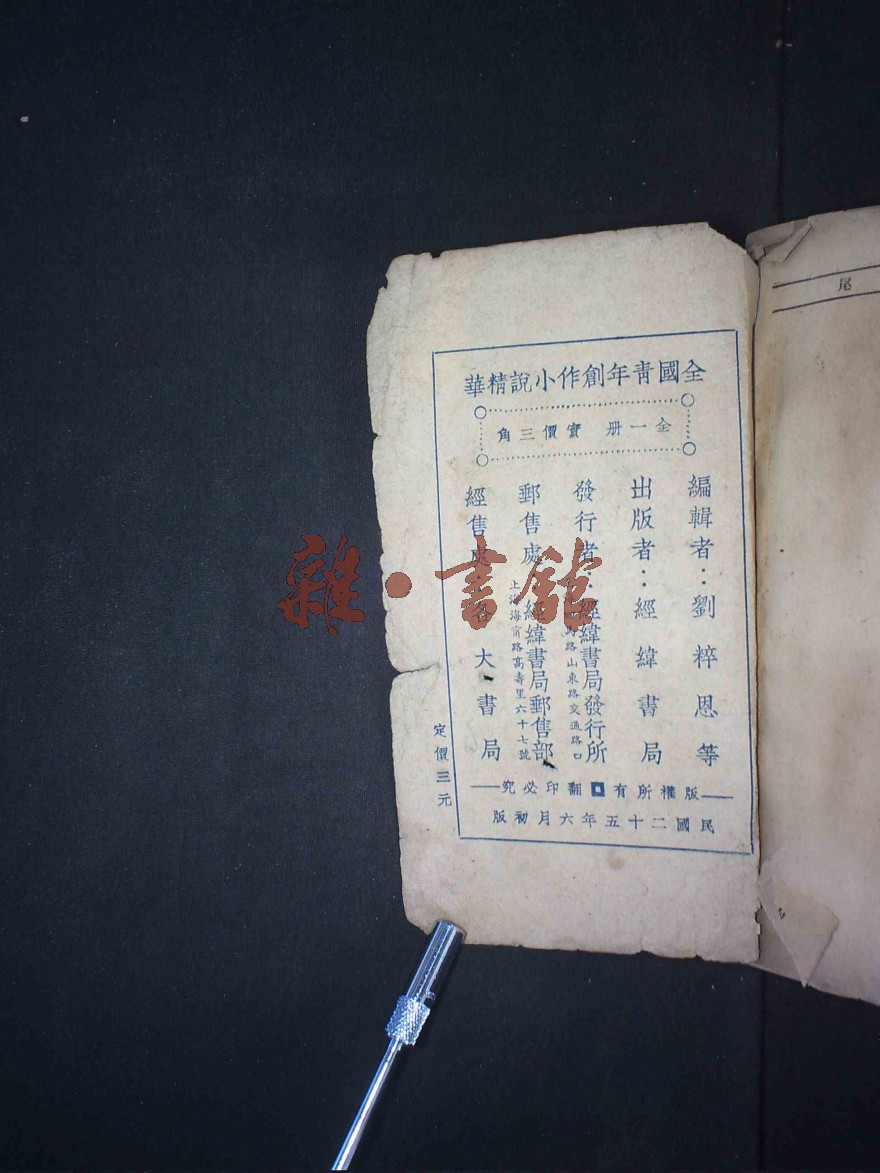 全國青年創作小說精華
全一册 實價三角
編輯者：劉粹恩等
出版者：經緯書局
發行者：經緯書局發行所
路山東路交通路口
郵售處 經緯書局郵售部
上海海甯路高壽里六十七號
經售處 各大書局
版權所有 翻印必究
民國二十五年六月初版
定價三元
尾
雜·書館